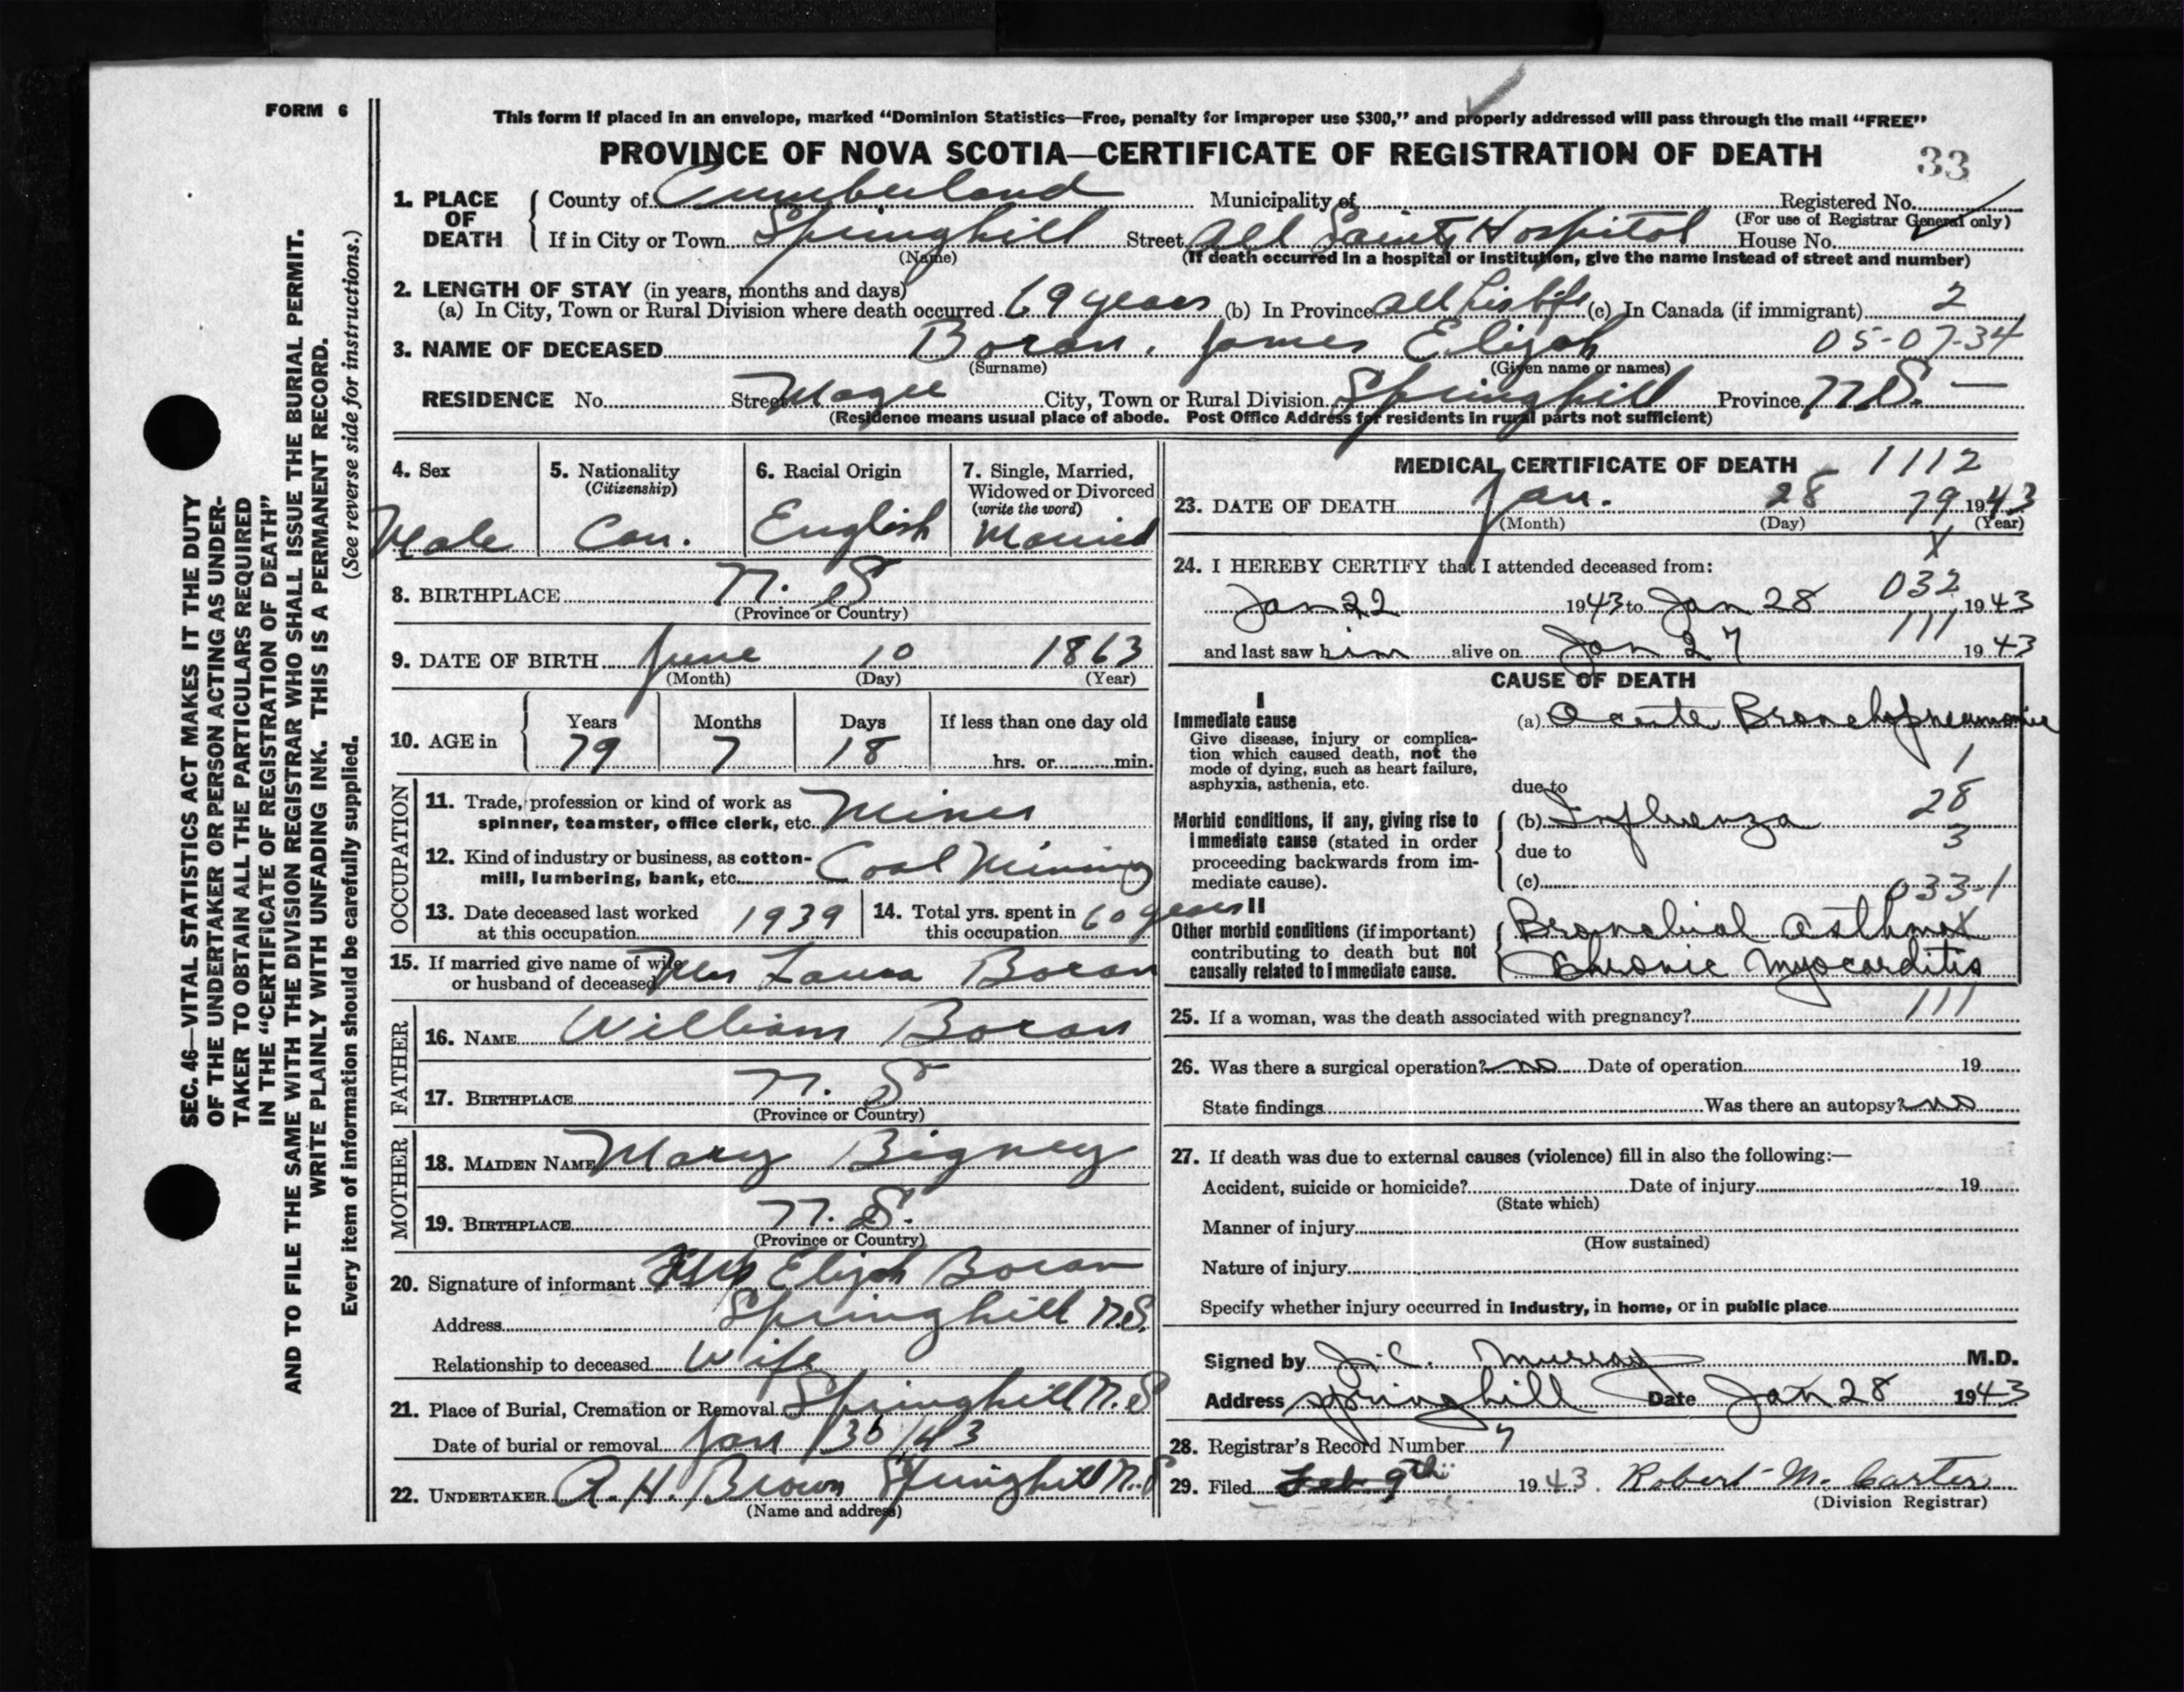 FORM 6
This form if placed in an envelope, marked “Dominion Statistics—Free, penalty for improper use $300,” and properly addressed will pass through the mail “FREE”
PROVINCE OF NOVA SCOTIA—CERTIFICATE OF REGISTRATION OF DEATH
33
1. PLACE OF DEATH
County of Cumberland Municipality of Registered No.
(For use of Registrar General only)
If in City or Town Springhill Street All Saints Hospital House No.
(Name) (If death occurred in a hospital or institution, give the name instead of street and number)
2. LENGTH OF STAY (in years, months and days)
(a) In City, Town or Rural Division where death occurred 69 years (b) In Province all his life (c) In Canada (if immigrant) 2
3. NAME OF DECEASED Boran, James Elijah 05-07-34
(Surname) (Given name or names)
RESIDENCE No. Street Magee City, Town or Rural Division Springhill Province N.S. —
(Residence means usual place of abode. Post Office Address for residents in rural parts not sufficient)
4. Sex
Male
5. Nationality
(Citizenship)
Can.
6. Racial Origin
English
7. Single, Married,
Widowed or Divorced
(write the word)
Married
8. BIRTHPLACE N. S
(Province or Country)
9. DATE OF BIRTH June 10 1863
(Month) (Day) (Year)
10. AGE in
Years Months Days If less than one day old
79 7 18 hrs. or min.
OCCUPATION
11. Trade, profession or kind of work as
spinner, teamster, office clerk, etc. Miner
12. Kind of industry or business, as cotton-
mill, lumbering, bank, etc. Coal Mining
13. Date deceased last worked
at this occupation 1939
14. Total yrs. spent in
this occupation 60 years
15. If married give name of wife
or husband of deceased Mrs Laura Boran
FATHER
16. NAME William Boran
17. BIRTHPLACE N. S
(Province or Country)
MOTHER
18. MAIDEN NAME Mary Bigney
19. BIRTHPLACE N. S.
(Province or Country)
20. Signature of informant Elijah Boran
Address Springhill N.S.
Relationship to deceased Wife
21. Place of Burial, Cremation or Removal Springhill N.S
Date of burial or removal Jan / 30 / 43
22. UNDERTAKER A. H. Brown Springhill N.S
(Name and address)
MEDICAL CERTIFICATE OF DEATH - 1112
23. DATE OF DEATH Jan. 28 79 1943
(Month) (Day) (Year)
X
24. I HEREBY CERTIFY that I attended deceased from:
032
Jan 22 1943 to Jan 28 1943
111
and last saw him alive on Jan 27 1943
CAUSE OF DEATH
I
Immediate cause
Give disease, injury or complica-
tion which caused death, not the
mode of dying, such as heart failure,
asphyxia, asthenia, etc.
(a) Acute Bronchopneumonia
1
due to
28
Morbid conditions, if any, giving rise to
immediate cause (stated in order
proceeding backwards from im-
mediate cause).
(b) Influenza
3
due to
(c)
033-1
II
Other morbid conditions (if important)
contributing to death but not
causally related to immediate cause.
Bronchial asthma
X
Chronic myocarditis
111
25. If a woman, was the death associated with pregnancy?
26. Was there a surgical operation? no Date of operation 19
State findings Was there an autopsy? no
27. If death was due to external causes (violence) fill in also the following:—
Accident, suicide or homicide? Date of injury 19
(State which)
Manner of injury
(How sustained)
Nature of injury
Specify whether injury occurred in industry, in home, or in public place
Signed by J. C. Murray M.D.
Address Springhill Date Jan 28 1943
28. Registrar's Record Number 7
29. Filed Feb 9th 1943. Robert M. Carter
(Division Registrar)
SEC. 46—VITAL STATISTICS ACT MAKES IT THE DUTY
OF THE UNDERTAKER OR PERSON ACTING AS UNDER-
TAKER TO OBTAIN ALL THE PARTICULARS REQUIRED
IN THE “CERTIFICATE OF REGISTRATION OF DEATH”
AND TO FILE THE SAME WITH THE DIVISION REGISTRAR WHO SHALL ISSUE THE BURIAL PERMIT.
WRITE PLAINLY WITH UNFADING INK. THIS IS A PERMANENT RECORD.
Every item of information should be carefully supplied. (See reverse side for instructions.)